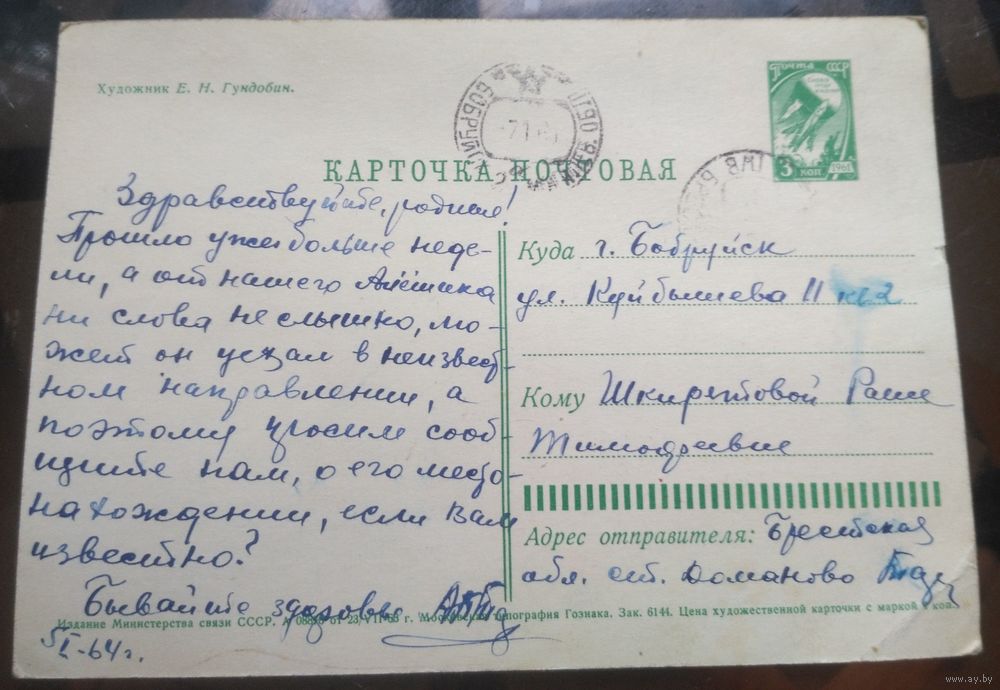 Художник Е. Н. Гундобин.
Почта СССР
3 коп 1961
КАРТОЧКА ПОЧТОВАЯ
Здравствуйте, родные!
Прошло уже больше неде-
ли, а от нашего Алёшика
ни слова не слышно, мо-
жет он уехал в неизвест-
ном направлении, а
поэтому просим сооб-
щите нам, о его место-
нахождении, если Вам
известно?
Бывайте здоровы
5/I-64 г.
Куда г. Бобруйск
ул. Куйбышева 11 кв 2
Кому Шкиретовой Раше
Тимофеевне
Адрес отправителя: Брестская
обл. ст. Доманово
Издание Министерства связи СССР. А 08836 от 23/VII-63 г. Московская типография Гознака. Зак. 6144. Цена художественной карточки с маркой 4 коп.
www.ay.by